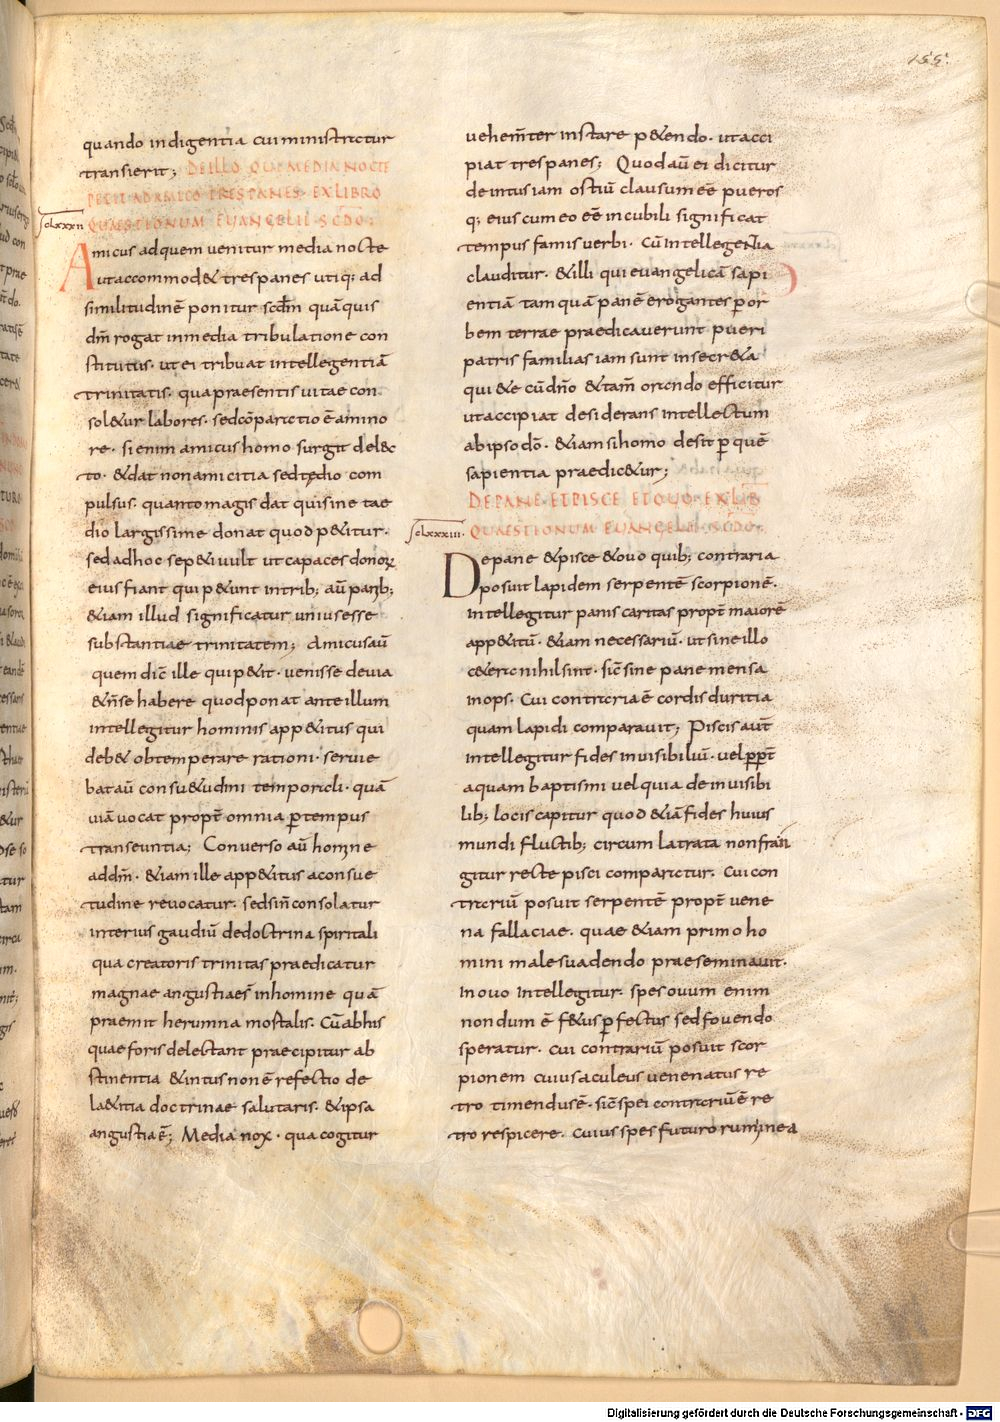 155.
quando indigentia cui ministratur
transierit; DE ILLO QUI MEDIA NOCTE
PETIT AD AMICO TRES PANES EX LIBRO
clxxxii QUAESTIONUM EUANGELII SCDO:
Amicus ad quem venitur media nocte
ut accommod& tres panes utiq; ad
similitudinē ponitur scdm̄ quā quis
dm̄ rogat in media tribulatione con
stitutus. ut ei tribuat intellegentiā
trinitatis. qua praesentis uitae con
sol&ur labores. sed cōparatio ē a mino
re. si enim amicus homo surgit de lec
to. & dat non amicitia sed tędio com
pulsus. quanto magis d̄s dat qui sine tae
dio largissime donat quod p&itur.
sed ad hoc se p&i uult ut capaces donorꝝ
eius fiant qui p&unt in trib; aū panib;
&iam illud significatur unius esse
substantiae trinitatem; Amicus aū
quem dic̄ ille qui p&it. uenisse de uia
& n̄ se habere quod ponat ante illum
intellegitur hominis app&itus qui
deb& obtemperare rationi. seruie
bat aū consu&udini temporali. quā
uiā uocat propt̄ omnia ꝑ tempus
transeuntia; Conuerso aū homine
ad dm̄. &iam ille app&itus a consue
tudine reuocatur. sed si n̄ consolatur
interius gaudiū de doctrina spiritali
qua creatoris trinitas praedicatur
magnae angustiae s̄ in homine quā
praemit herumna mortalis. Cū ab his
quae foris delectant praecipitur ab
stinentia & intus non ē refectio de
la&itia doctrinae salutaris. & ipsa
angustia ē; Media nox. qua cogitur
uehem̄ter instare p&endo. ut acci
piat tres panes; Quod aū ei dicitur
de intus iam ostiū clausum eē pueros
q; eius cum eo eē in cubili significat
tempus famis uerbi. Cū intellegentia
clauditur. & illi qui euangelicā sapi
entiā tamquā panē erogantes ꝑ or
bem terrae praedicauerunt pueri
patris familias iam sunt in secr&a
quie cū dn̄o & tam̄ orando efficitur
ut accipiat desiderans intellectum
ab ipso dō. &iam si homo desit ꝑ quē
sapientia praedic&ur;
DE PANE ET PISCE ET OUO EX LIB
clxxxiii. QUAESTIONUM EUANGELII SCDO.
De pane & pisce & ouo quib; contraria
posuit lapidem serpentē scorpionē.
Intellegitur panis caritas propt̄ maiorē
app&itū. &iam necessariū. ut sine illo
c&era nihil sint. sic̄ sine pane mensa
inops. Cui contraria ē cordis duritia
quam lapidi comparauit; Piscis aut̄
intellegitur fides inuisibiliū. uel ꝓpt̄
aquam baptismi uel quia de inuisibi
lib; locis capitur quod &iā fides huius
mundi fluctib; circum latrata non fran
gitur recte pisci comparatur. Cui con
trariū posuit serpentē propt̄ uene
na fallaciae. quae &iam primo ho
mini male suadendo praeseminauit.
In ouo intellegitur. spes ouum enim
nondum ē f&us ꝑfectus sed fouendo
speratur. cui contrariū posuit scor
pionem cuius aculeus uenenatus re
tro timendus ē. sic̄ spei contrariū ē re
tro respicere. cuius spes futurorum in ea
Digitalisierung gefördert durch die Deutsche Forschungsgemeinschaft - DFG